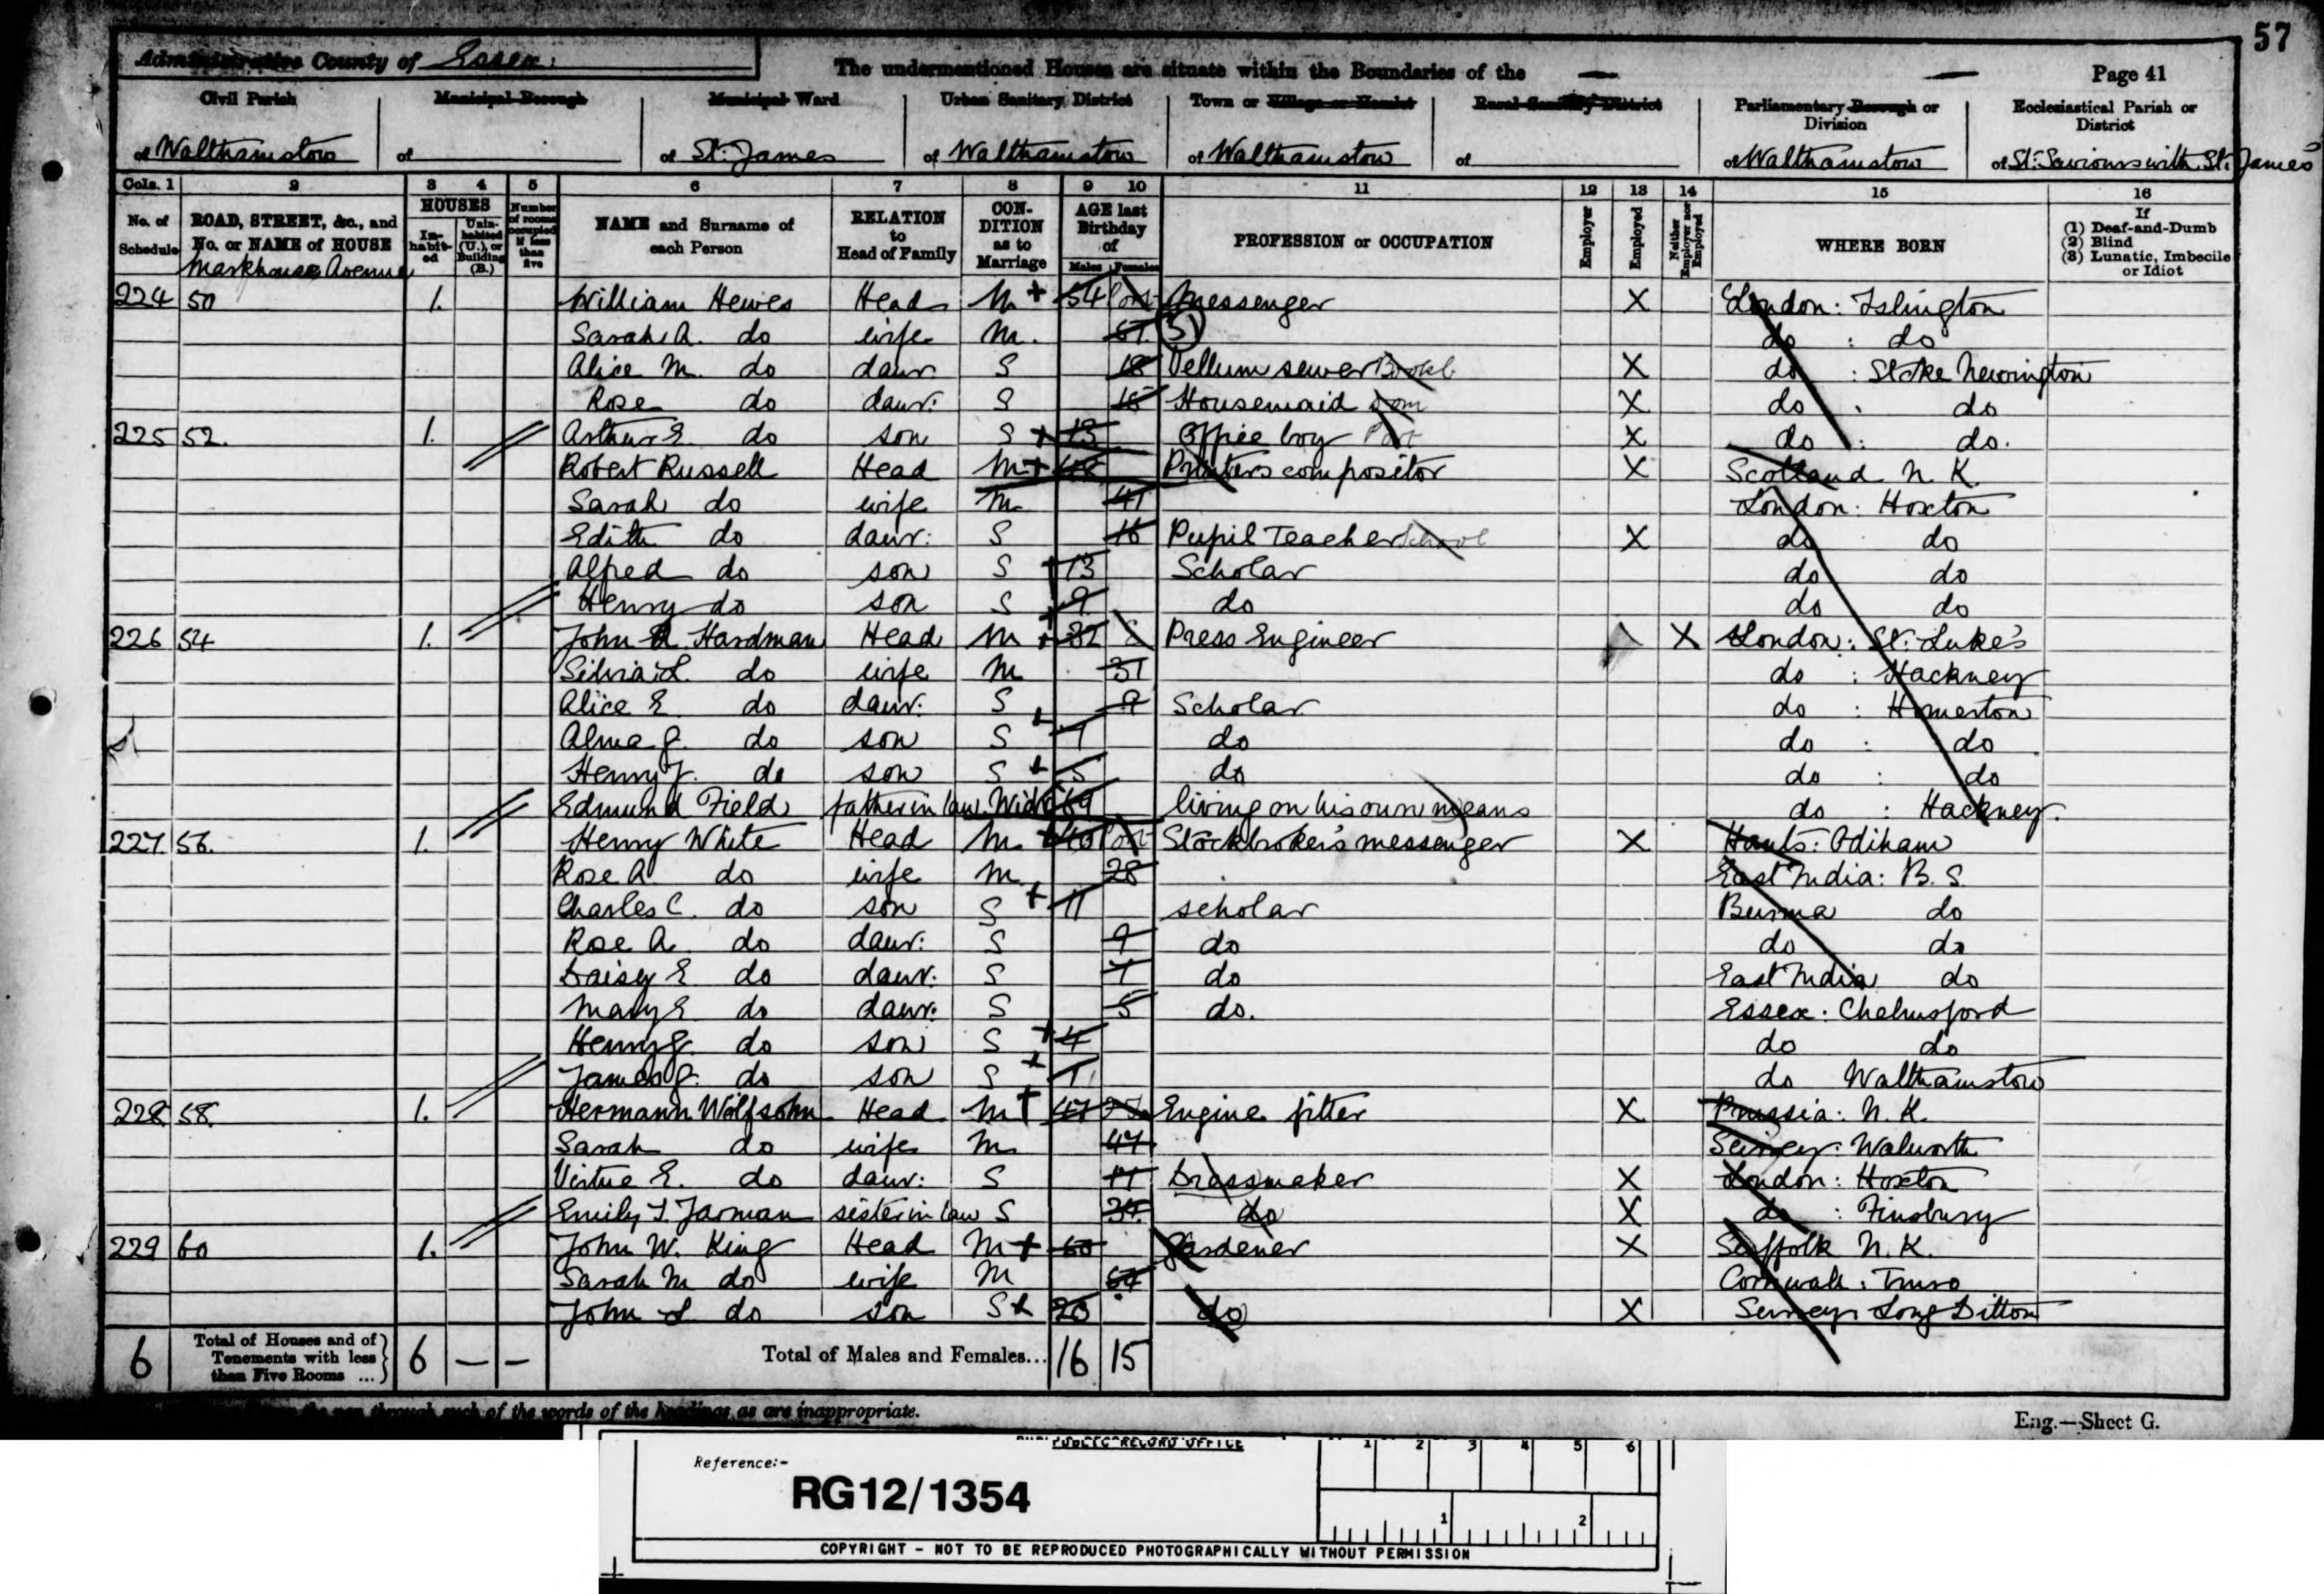 57
Administrative County of Essex
The undermentioned Houses are situate within the Boundaries of the
Page 41
Civil Parish
of Walthamstow
Municipal Borough
of
Municipal Ward
of St. James
Urban Sanitary District
of Walthamstow
Town or Village or Hamlet
of Walthamstow
Rural Sanitary District
of
Parliamentary Borough or Division
of Walthamstow
Ecclesiastical Parish or District
of St. Saviours with St. James
Cols. 1 2 3 4 5 6 7 8 9 10 11 12 13 14 15 16
No. of Schedule
ROAD, STREET, &c., and No. or NAME of HOUSE
HOUSES
In-habit-ed
Unin-habited (U.), or Building (B.)
Number of rooms occupied if less than five
NAME and Surname of each Person
RELATION to Head of Family
CON-DITION as to Marriage
AGE last Birthday of
Males Females
PROFESSION or OCCUPATION
Employer
Employed
Neither Employer nor Employed
WHERE BORN
If
(1) Deaf-and-Dumb
(2) Blind
(3) Lunatic, Imbecile or Idiot
Markhouse Avenue
224 50 1. William Hewes Head M + 54 Messenger X London: Islington
Sarah A. do wife M. 51 do : do
Alice M. do daur. S 18 Vellum sewer Bookb X do : Stoke Newington
Rose do daur: S 15 Housemaid Dom X do do
225 52. 1. Arthur E. do son S + 13 Office boy X do : do.
Robert Russell Head M + Printers compositor X Scotland N.K.
Sarah do wife M 41 London: Hoxton
Edith do daur: S 16 Pupil Teacher School X do do
Alfred do son S 13 Scholar do do
Henry do son S 9 do do do
226 54 1. John Hardman Head M + 32 Press Engineer X London: St. Luke's
Silvia L. do wife M 31 do : Hackney
Alice E. do daur: S 9 Scholar do : Homerton
Alma J. do son S + 7 do do : do
Henry J. do son S + 5 do do : do
Edmund Field father in law Widr 69 living on his own means do : Hackney.
227. 56. 1. Henry White Head M + 40 Stockbroker's messenger X Hants: Odiham
Rose A do wife M 28 East India: B.S.
Charles C. do son S + 11 scholar Burma do
Rose A. do daur: S 9 do do do
Daisey E do daur: S 7 do East India do
Mary E. do daur: S 5 do. Essex: Chelmsford
Henry G. do son S + 4 do do
James J. do son S + 1 do Walthamstow
228. 58. 1. Hermann Wolfsohn Head M + 47 Engine fitter X Prussia: N.K.
Sarah do wife M 47 Surrey: Walworth
Virtue E. do daur: S Dressmaker X London: Hoxton
Emily T. Jarman sister in law S do X do : Finsbury
229 60 1. John W. King Head M + 60 Gardener X Suffolk N.K.
Sarah M do wife M 54 Cornwall: Truro
John do son S + 20 do X Surrey: Long Ditton
6 Total of Houses and of Tenements with less than Five Rooms ... 6 — — Total of Males and Females... 16 15
the pen through such of the words of the headings as are inappropriate.
Eng.—Sheet G.
PUBLIC RECORD OFFICE
1 2 3 4 5 6
Reference:-
RG12/1354
1 2
COPYRIGHT - NOT TO BE REPRODUCED PHOTOGRAPHICALLY WITHOUT PERMISSION